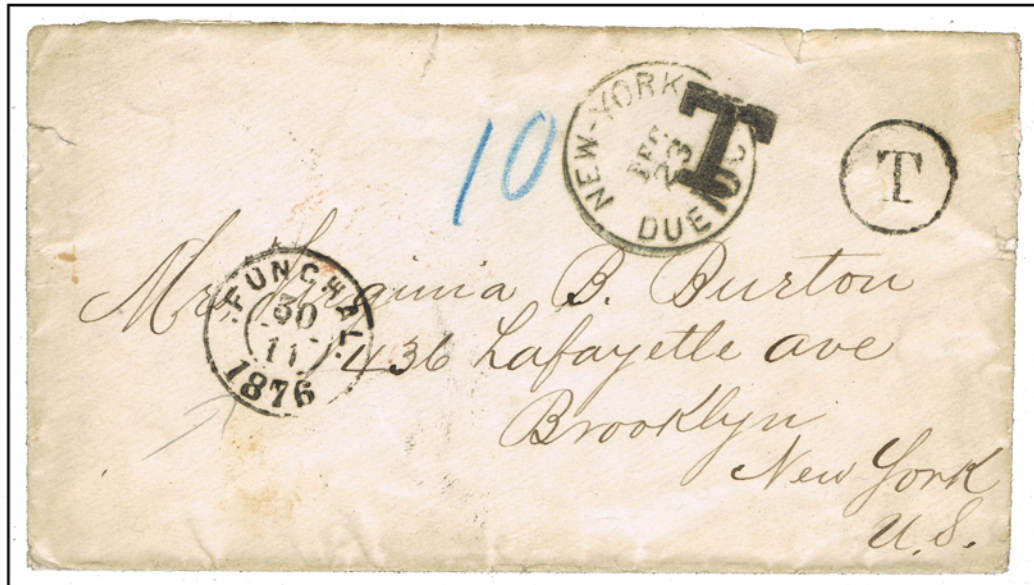 10
NEW-YORK
DEC
23
DUE
T
T
FUNCHAL
30
11
1876
Mrs Virginia B. Burton
436 Lafayette ave
Brooklyn
New York
U.S.